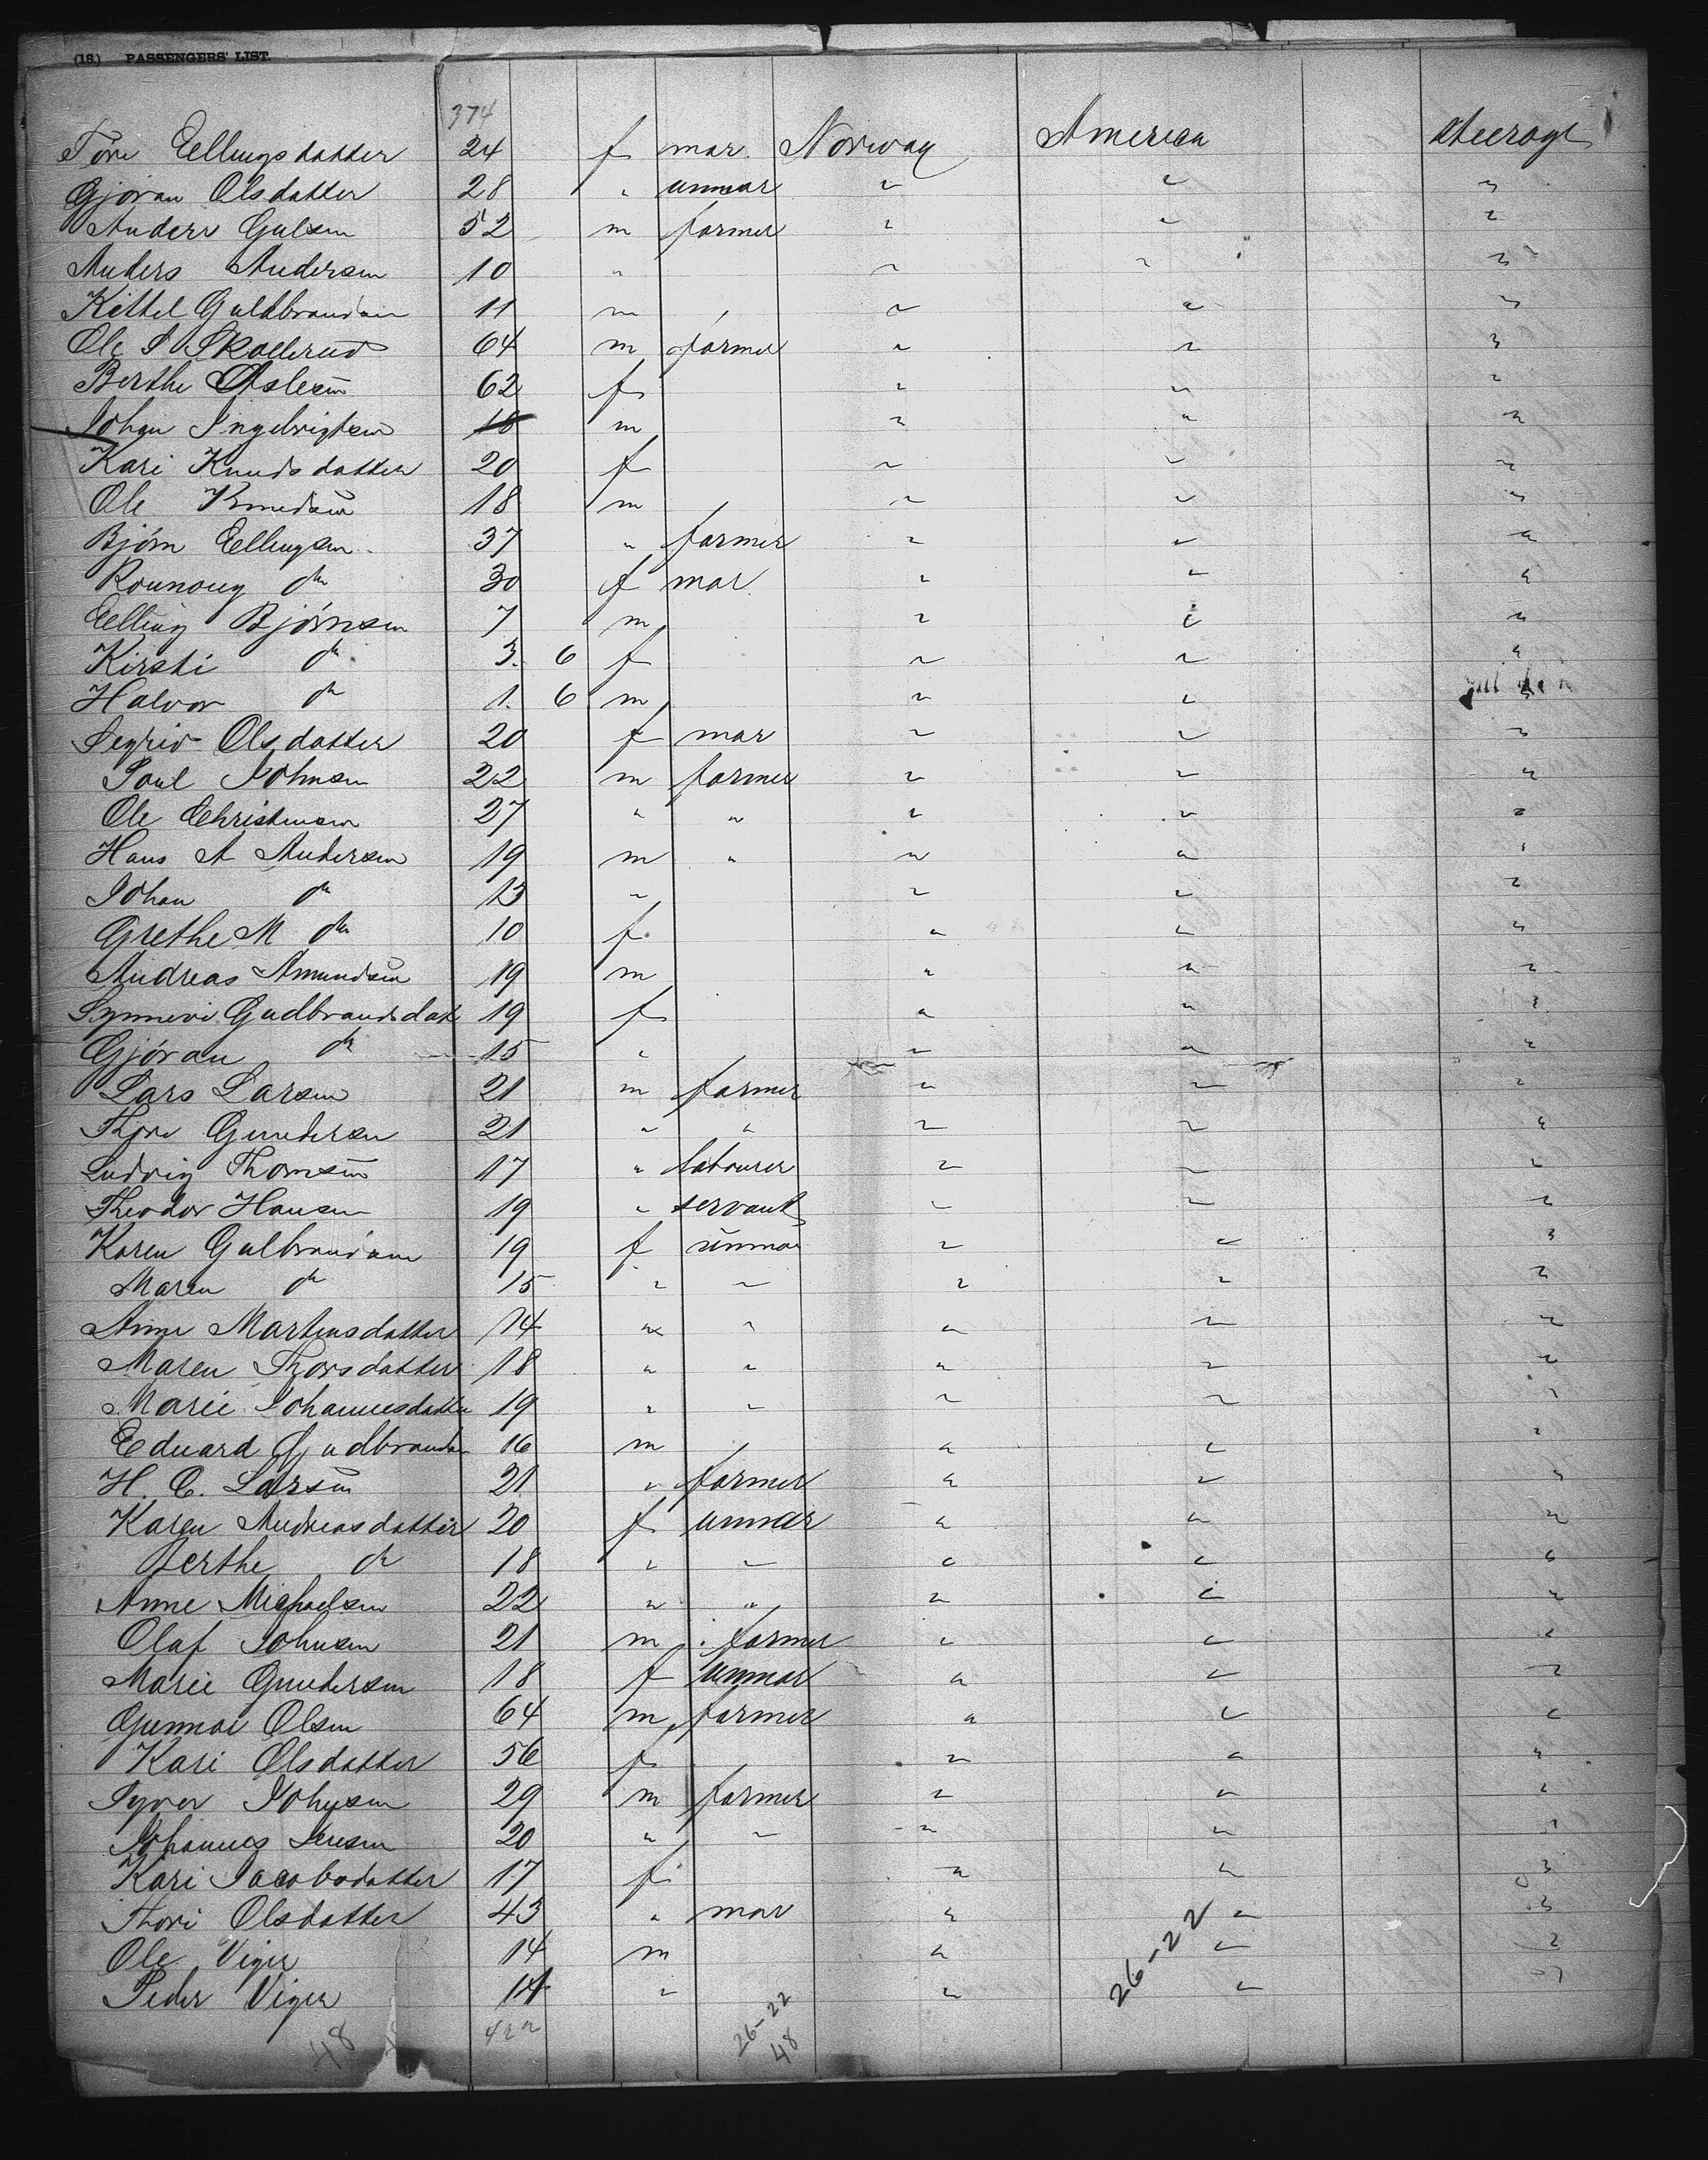 (18) PASSENGERS' LIST.
374
Tore Ellingsdatter 24 f mar. Norway America Steerage
Gjøran Olsdatter 28 " unmar " " "
Anders Gulsen 52 m farmer " " "
Anders Andersen 10 " " " "
Kittel Guldbrandsen 11 m " " " "
Ole S Skollerud 64 m farmer " " "
Berthe Olslesen 62 f " " "
Johan Ingebrigtsen 18 m " " "
Kari Knudsdatter 20 f " " "
Ole Knudsen 18 m " " "
Bjørn Ellingsen 37 " farmer " " "
Rounoug do 30 f mar. " " "
Elling Bjørnsen 7 m " " "
Kirsti do 3. 6 f " " "
Halvor do 1. 6 m " " "
Segrid Olsdatter 20 f mar " " "
Poul Johnsen 22 m farmer " " "
Ole Christensen 27 " " " " "
Hans A Andersen 19 m " " " "
Johan do 13 " " " "
Grethe M do 10 f " " "
Andreas Amundsen 19 m " " "
Synnevi Gudbrandsdat 19 f " " "
Gjøran do 15 " " " "
Lars Larsen 21 m farmer " " "
Thore Gundersen 21 " " " " "
Ludvig Thomsen 17 " labourer " " "
Theodor Hansen 19 " servant " " "
Karen Gulbrandsen 19 f unmar " " "
Maren do 15 " " " " "
Anne Martensdatter 14 " " " " "
Maren Thorsdatter 18 " " " " "
Marie Johannesdatter 19 " " " " "
Eduard Gudbrandsen 16 m " " " "
H. C. Larsen 21 " farmer " " "
Karen Andreasdatter 20 f unmar " " "
Berthe do 18 " " " " "
Anne Michaelsen 22 " " " " "
Olaf Johnsen 21 m farmer " " "
Marie Gundersen 18 f unmar " " "
Gunnar Olsen 64 m farmer " " "
Kari Olsdatter 56 f " " "
Syver Johnsen 29 m farmer " " "
Johannes Jensen 20 " " " " "
Kari Jacobsdatter 17 f " " "
Thori Olsdatter 43 " mar " " "
Ole Viger 14 m " " "
Peder Viger 14 " " " "
26-22
48 422 26-22
48